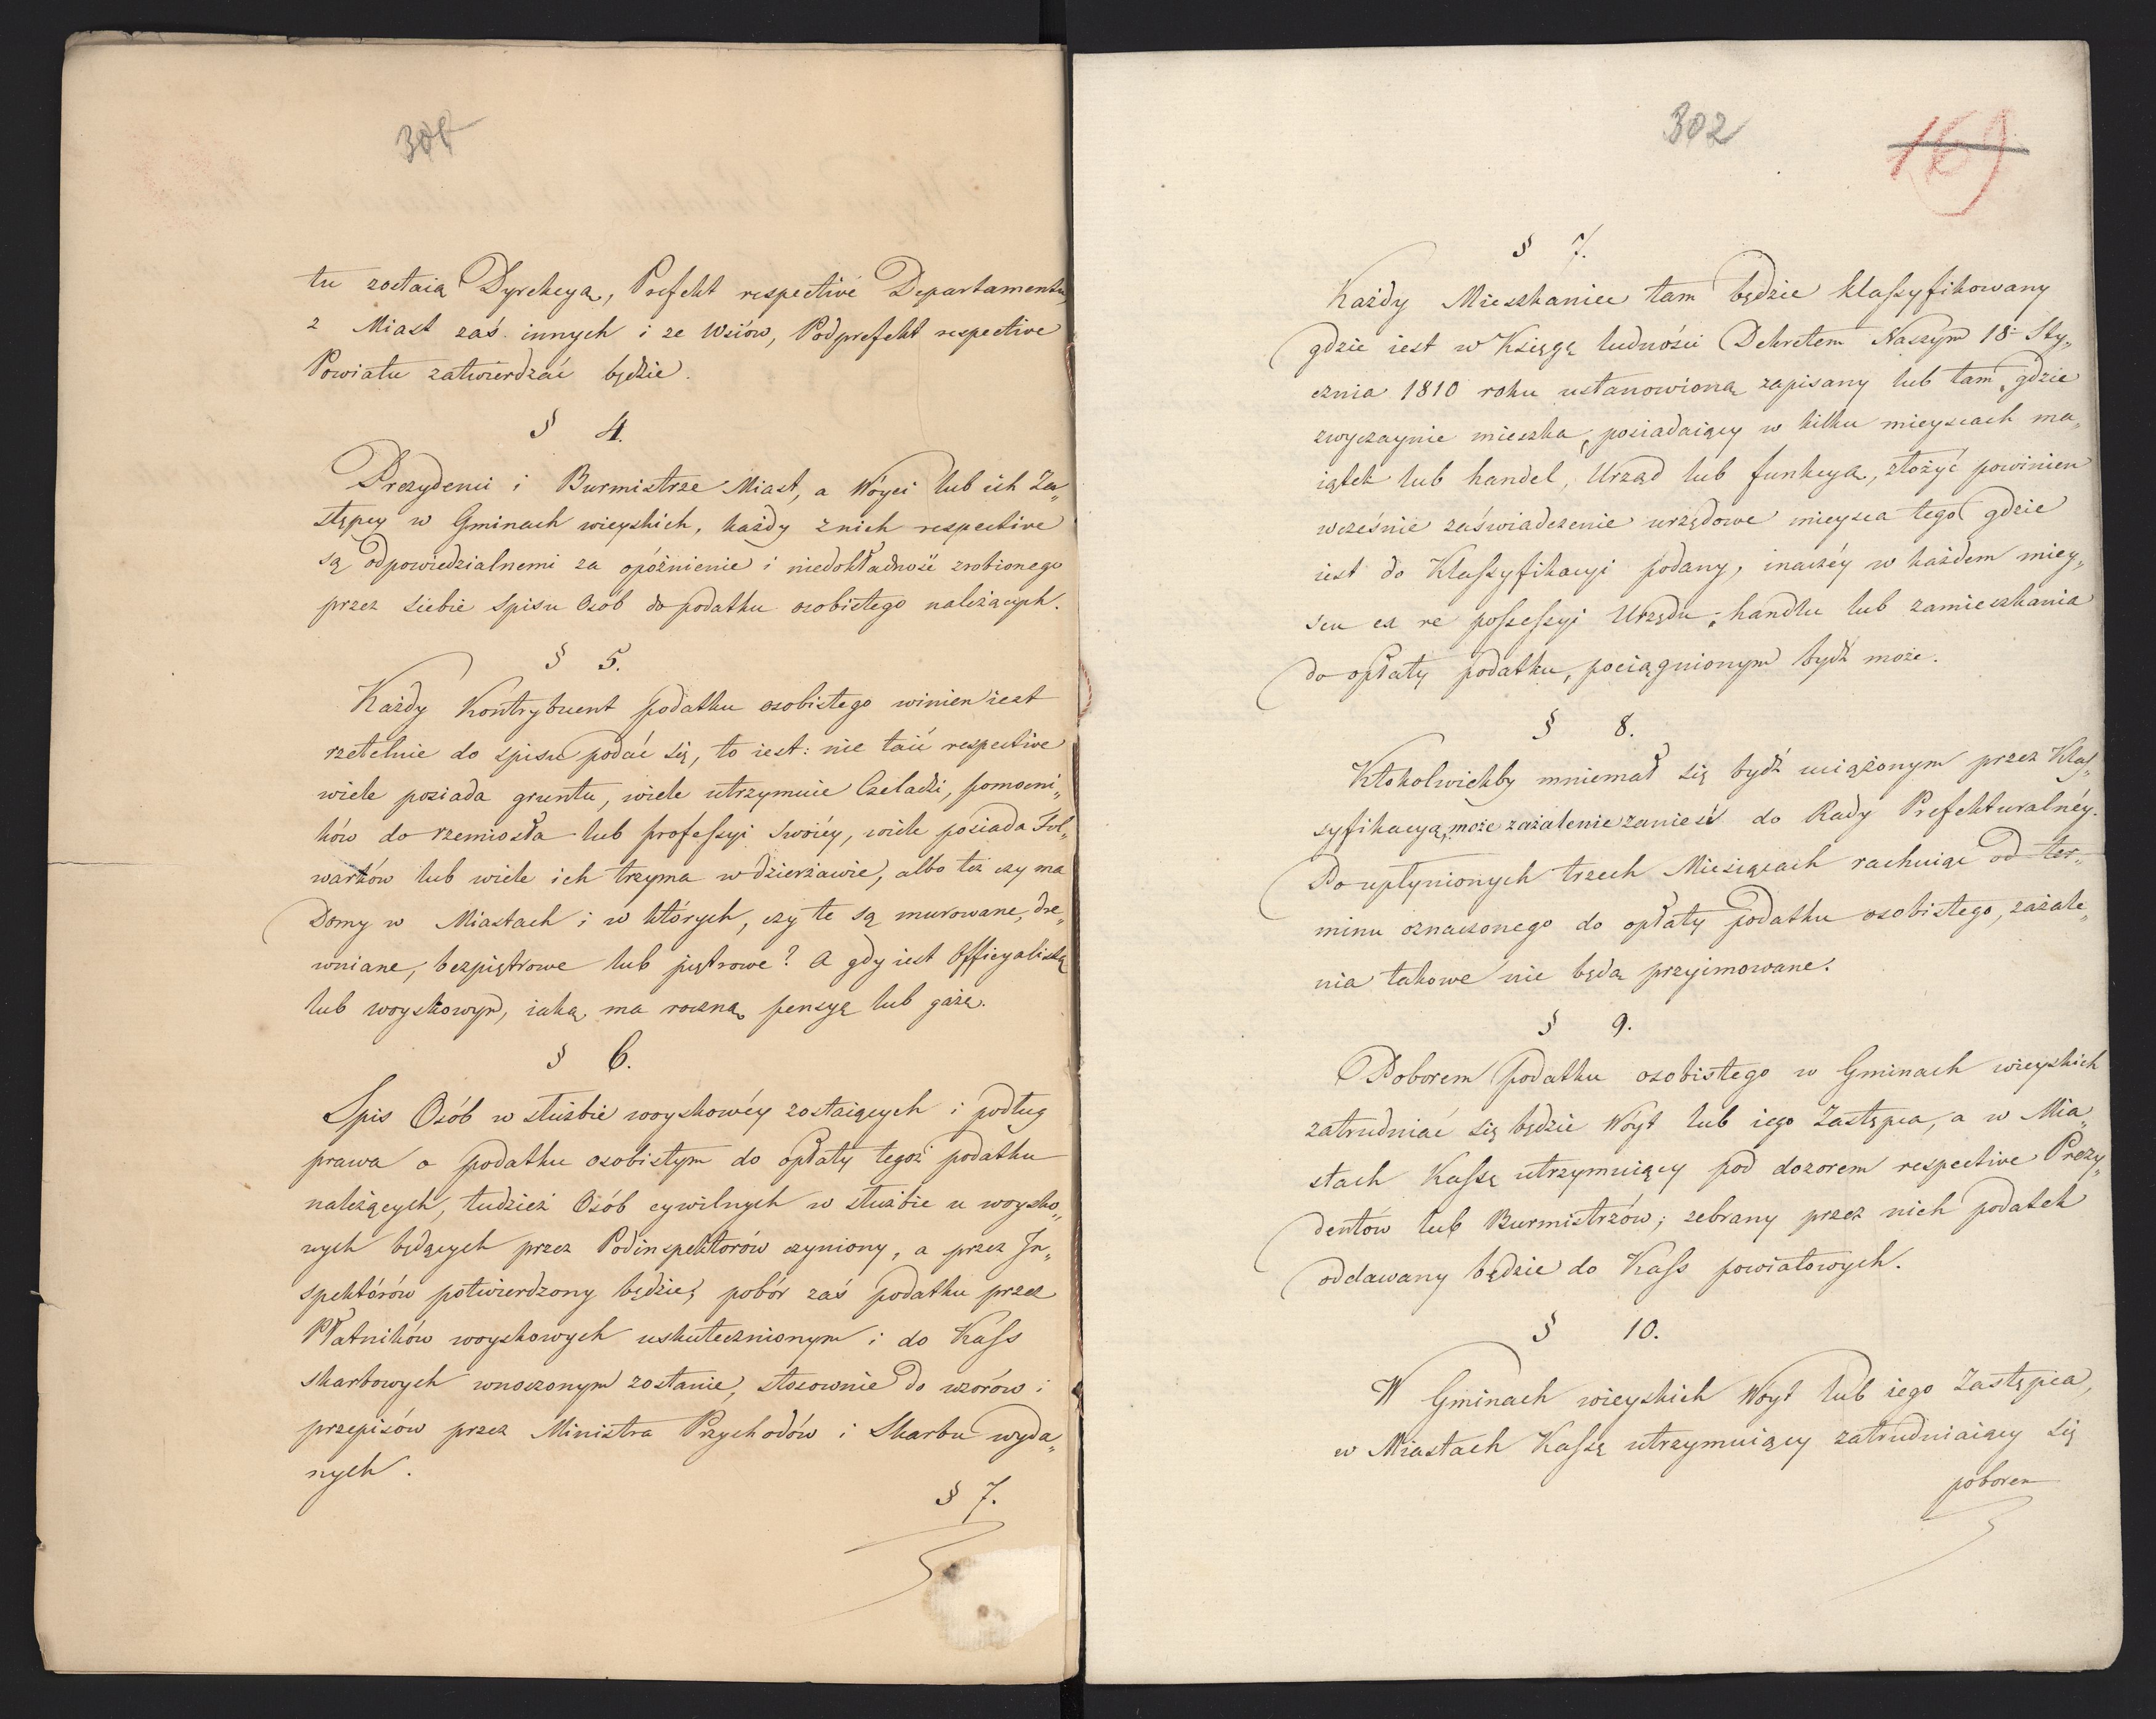 301
tu zostaią Dyrekcyą, Prefekt respective Departamentu
z Miast zaś innych i ze Wsiów, Podprefekt respective
Powiatu zatwierdzać będzie.
§ 4.
Prezydenci i Burmistrze Miast, a Wóyci lub ich Za„
stępcy w Gminach wieyskich, każdy z nich respective
są odpowiedzialnemi za opóźnienie i niedokładność zrobionego
przez siebie spisu Osób do podatku osobistego należących.
§ 5.
Każdy Kontrybuent podatku osobistego winien iest
rzetelnie do spisu podać się, to iest: nie taić respective
wiele posiada gruntu, wiele utrzymuie Czeladzi, pomocni„
ków do rzemiosła lub professyi swoiéy, wiele posiada Fol„
warków lub wiele ich trzyma w dzierżawie, albo też czy ma
Domy w Miastach i w których, czy te są murowane, dre„
wniane, bezpiętrowe lub piętrowe? A gdy iest Officyalistą
lub woyskowym, iaką ma roczną pensyą lub gażą.
§ 6.
Spis Osób w służbie woyskowéy zostaiących i podług
prawa o podatku osobistym do opłaty tegoż podatku
należących, tudzież Osób cywilnych w służbie u woysko„
wych będących przez Podinspektorów czyniony, a przez In„
spektórów potwierdzony będzie, pobór zaś podatku przez
Płatników woyskowych uskutecznionym i do Kass
skarbowych wnoszonym zostanie, stosownie do wzorów i
przepisów przez Ministra Przychodów i Skarbu wyda„
nych.
§ 7.
302
169
§ 7.
Każdy Mieszkaniec tam będzie klassyfikowany
gdzie iest w Księgę ludności Dekretem Naszym 18 Sty„
cznia 1810 roku ustanowioną zapisany lub tam gdzie
zwyczaynie mieszka, posiadaiący w kilku mieyscach ma„
iątek lub handel, Urząd lub funkcyą, złożyć powinien
wcześnie zaświadczenie urzędowe mieysca tego gdzie
iest do Klassyfikacyi podany, inaczéy w każdem miey„
scu ex re possessyi Urzędu, handlu lub zamieszkania
do opłaty podatku, pociągnionym bydź może.
§ 8.
Ktokolwiekby mniemał się bydź uciążonym przez Klas„
syfikacyą, może zażalenie zanieść do Rady Prefekturalnéy.
Po upłynionych trzech Miesiącach rachuiąc od ter„
minu oznaczonego do opłaty podatku osobistego, zażale„
nia takowe nie będą przyimowane.
§ 9.
Poborem podatku osobistego w Gminach wieyskich
zatrudniać się będzie Wóyt lub iego Zastępca, a w Mia„
stach Kassę utrzymuiący pod dozorem respective Prezy„
dentów lub Burmistrzów; zebrany przez nich podatek
oddawany będzie do Kass powiatowych.
§ 10.
W Gminach wieyskich Woyt lub iego Zastępca,
w Miastach Kassę utrzymuiący zatrudniaiący się
poborem